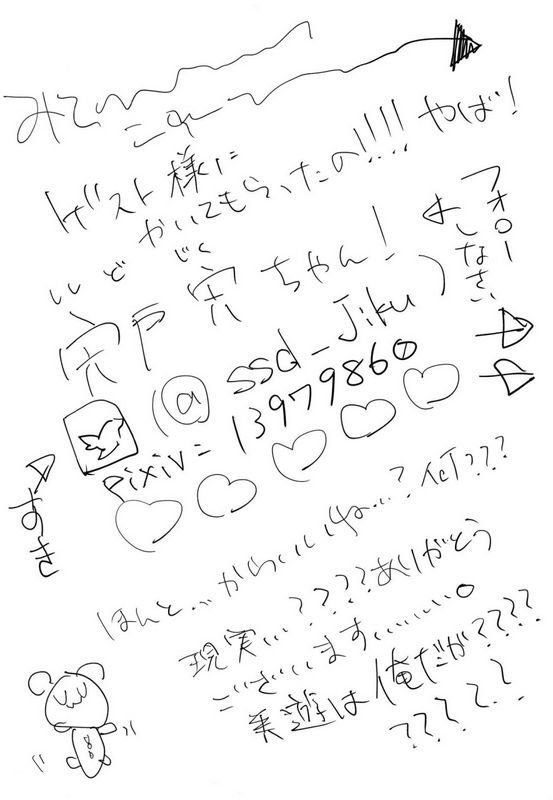 みて
この
ゲスト様に
かいてもらったの!!!! やば!
ししど じく
宍戸 宍ちゃん!
(@ssd_Jiku)
pixiv=13979860
フォロー
しなさい
すき
ほんと…かわいいね…?何???
現実…????ありがとう
ございます……。
美遊は俺だが????
?????